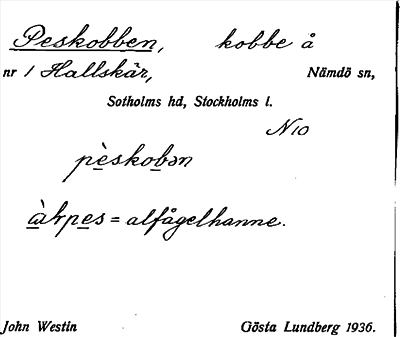 Peskobben, kobbe å
nr 1 Hallskär, Nämdö sn,
Sotholms hd, Stockholms l.
N10
pèskobən
àlrpes = alfågelhanne.
John Westin Gösta Lundberg 1936.